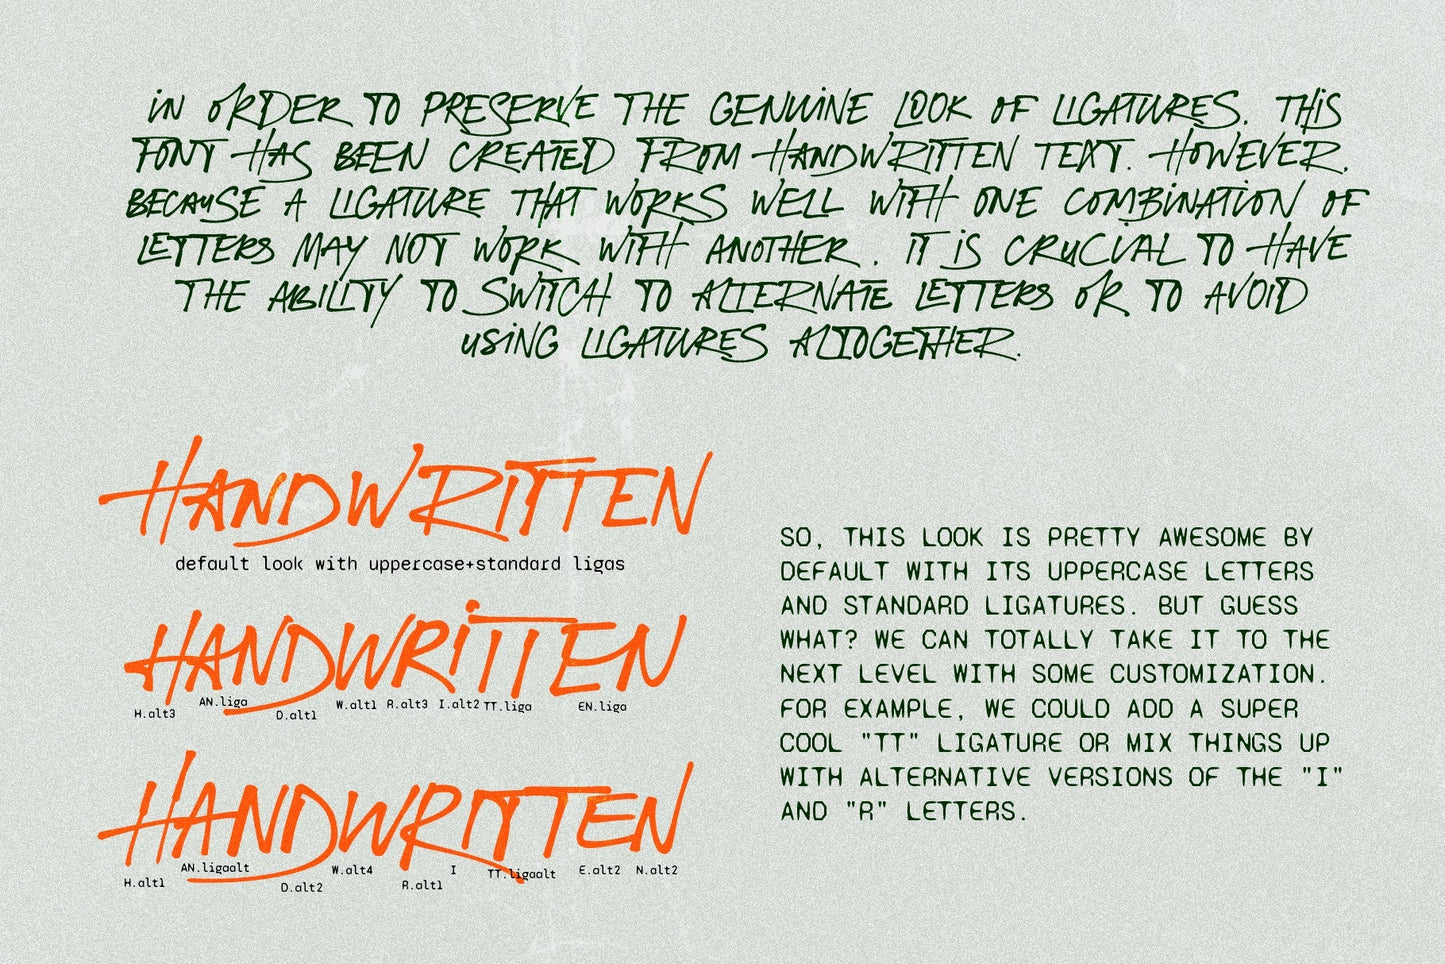 iN ORDER TO PRESERVE THE GENUiNE LOOK OF LIGATURES. THiS
FONT HAS BEEN CREATED FROM HANDWRITTEN TEXT. HOWEVER,
BECAUSE A LIGATURE THAT WORKS WELL WITH ONE COMBiNATION OF
LETTERS MAY NOT WORK WITH ANOTHER. IT iS CRUCIAL TO HAVE
THE ABILITY TO SWITCH TO ALTERNATE LETTERS OR TO AVOID
USiNG LIGATURES ALTOGETHER.
HANDWRITTEN
default look with uppercase+standard ligas
HANDWRiTTEN
H.alt3 AN.liga D.alt1 W.alt1 R.alt3 I.alt2 TT.liga EN.liga
HANDWRITTEN
H.alt1 AN.ligaalt D.alt2 W.alt4 R.alt1 I TT.ligaalt E.alt2 N.alt2
SO, THIS LOOK IS PRETTY AWESOME BY
DEFAULT WITH ITS UPPERCASE LETTERS
AND STANDARD LIGATURES. BUT GUESS
WHAT? WE CAN TOTALLY TAKE IT TO THE
NEXT LEVEL WITH SOME CUSTOMIZATION.
FOR EXAMPLE, WE COULD ADD A SUPER
COOL "TT" LIGATURE OR MIX THINGS UP
WITH ALTERNATIVE VERSIONS OF THE "I"
AND "R" LETTERS.